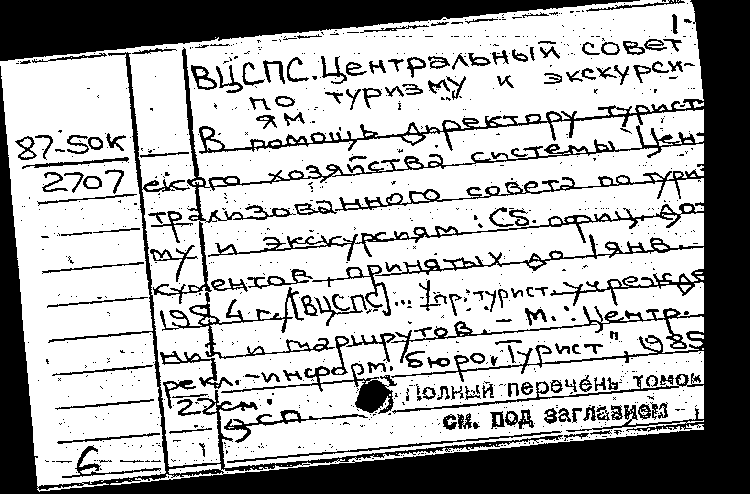 1-
ВЦСПС. Центральный совет
по туризму и экскурси-
ям.
87-50к
2707
В помощь директору турист
ского хозяйства системы Цен
трализованного совета по тури
му и экскурсиям : Сб. офиц. до
кументов, принятых до 1 янв.
1984 г. / [ВЦСПС]... Упр. турист. учрежде
ний и маршрутов. - М. : Центр.
рекл.-информ. бюро "Турист", 1985
22см.
Полный перечень томов
см. под заглавием
6